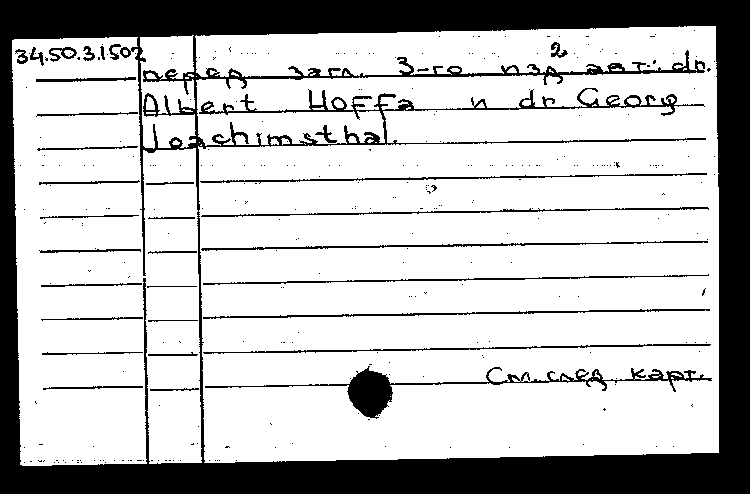 34.50.3.1502
2
перед загл. 3-го изд авт.: dr.
Albert Hoffa и dr Georg
Joachimsthal.
См. след. карт.